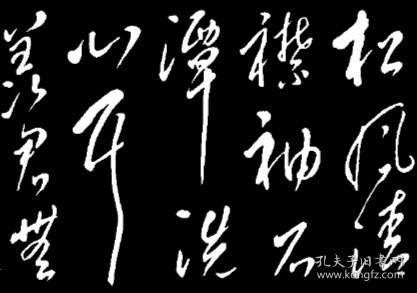 松风清
襟袖石
潭洗
心耳
羡君无
孔夫子旧书网
www.kongfz.com